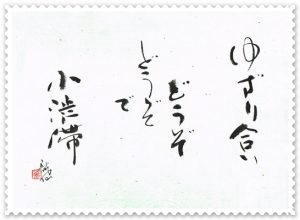 ゆずり合い
どうぞ
どうぞ
で
小渋滞